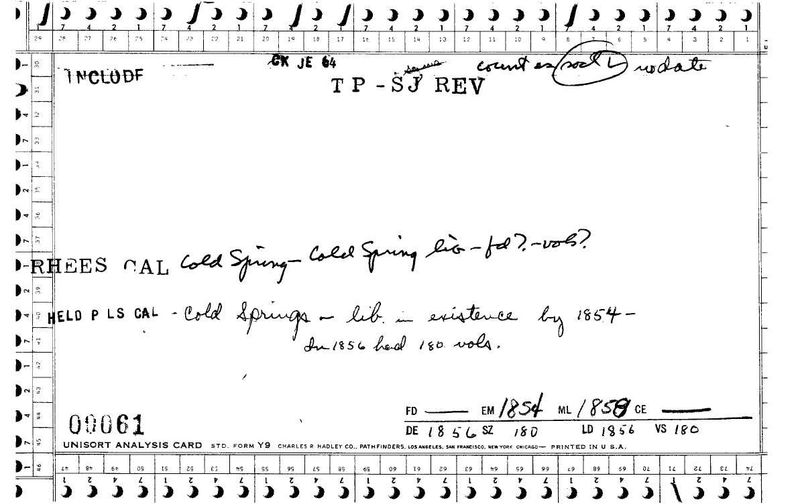 INCLUDE
CK JE 64
count as soc'l no date
TP-SJ REV
RHEES CAL Cold Spring – Cold Spring lib – fd? – vols?
HELD P LS CAL - Cold Springs – lib. in existence by 1854 –
In 1856 had 180 vols.
FD — EM 1854 ML 1858 CE —
00061
DE 1856 SZ 180 LD 1856 VS 180
UNISORT ANALYSIS CARD STD. FORM Y9 CHARLES R HADLEY CO., PATHFINDERS, LOS ANGELES, SAN FRANCISCO, NEW YORK CHICAGO — PRINTED IN U.S.A.